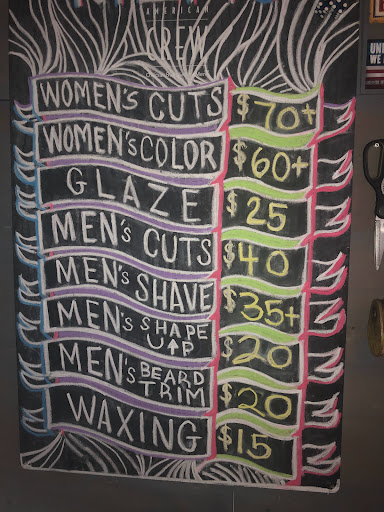 AMERICAN
CREW
WOMEN'S CUTS $70+
WOMEN'S COLOR $60+
GLAZE $25
MEN'S CUTS $40
MEN'S SHAVE $35+
MEN'S SHAPE UP $20
MEN'S BEARD TRIM $20
WAXING $15